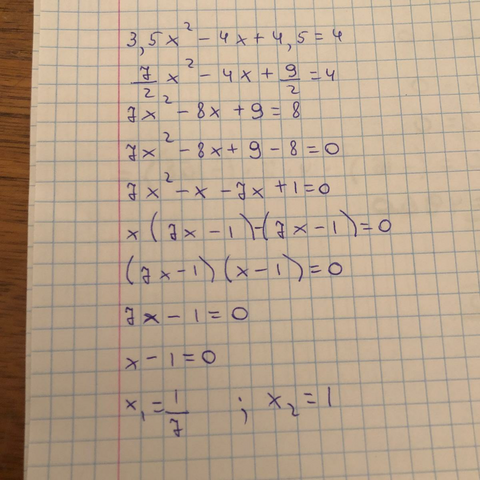 3,5x² - 4x + 4,5 = 4
7/2 x² - 4x + 9/2 = 4
7x² - 8x + 9 = 8
7x² - 8x + 9 - 8 = 0
7x² - x - 7x + 1 = 0
x(7x - 1) - (7x - 1) = 0
(7x - 1)(x - 1) = 0
7x - 1 = 0
x - 1 = 0
x₁ = 1/7 ; x₂ = 1